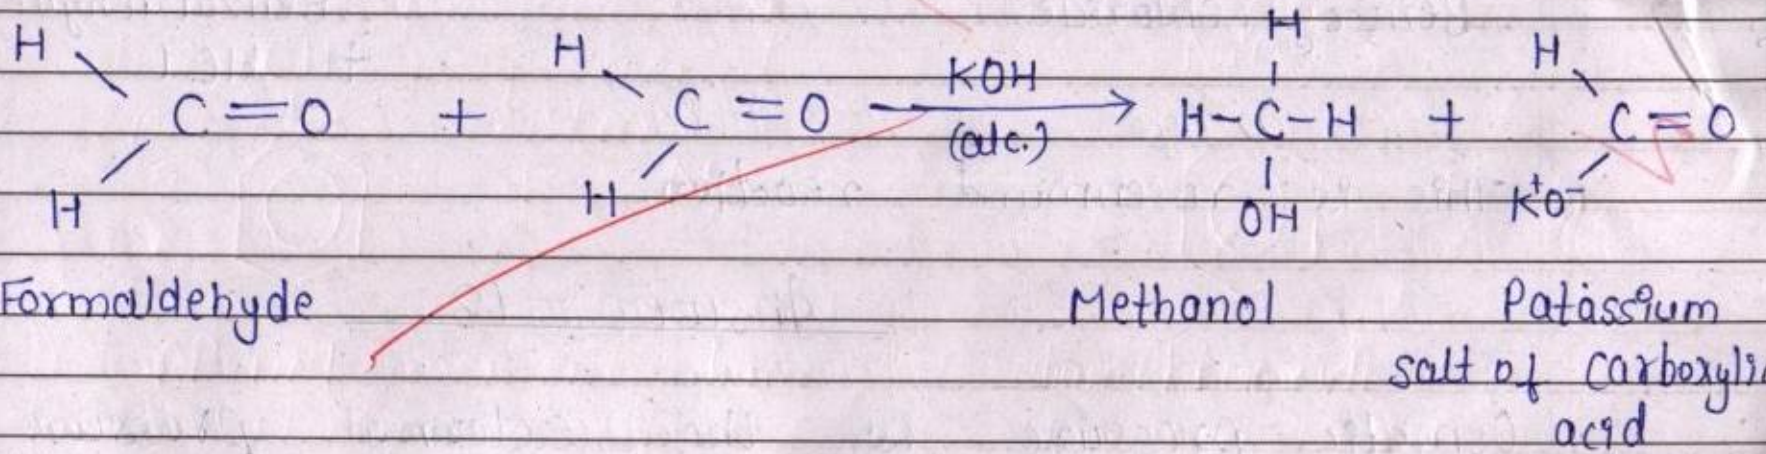 H H H H
C=O + C=O KOH H-C-H + C=O
(alc.)
H H OH K⁺O⁻
Formaldehyde Methanol Patassium
salt of Carboxyli
acid